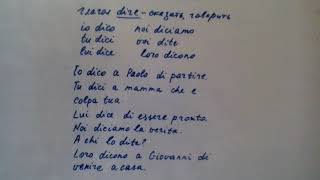 глагол dire - сказать, говорить
io dico noi diciamo
tu dici voi dite
lui dice loro dicono
Io dico a Paolo di partire.
Tu dici a mamma che e
colpa tua.
Lui dice di essere pronto.
Noi diciamo la verita.
A chi lo dite?
Loro dicono a Giovanni di
venire a casa.